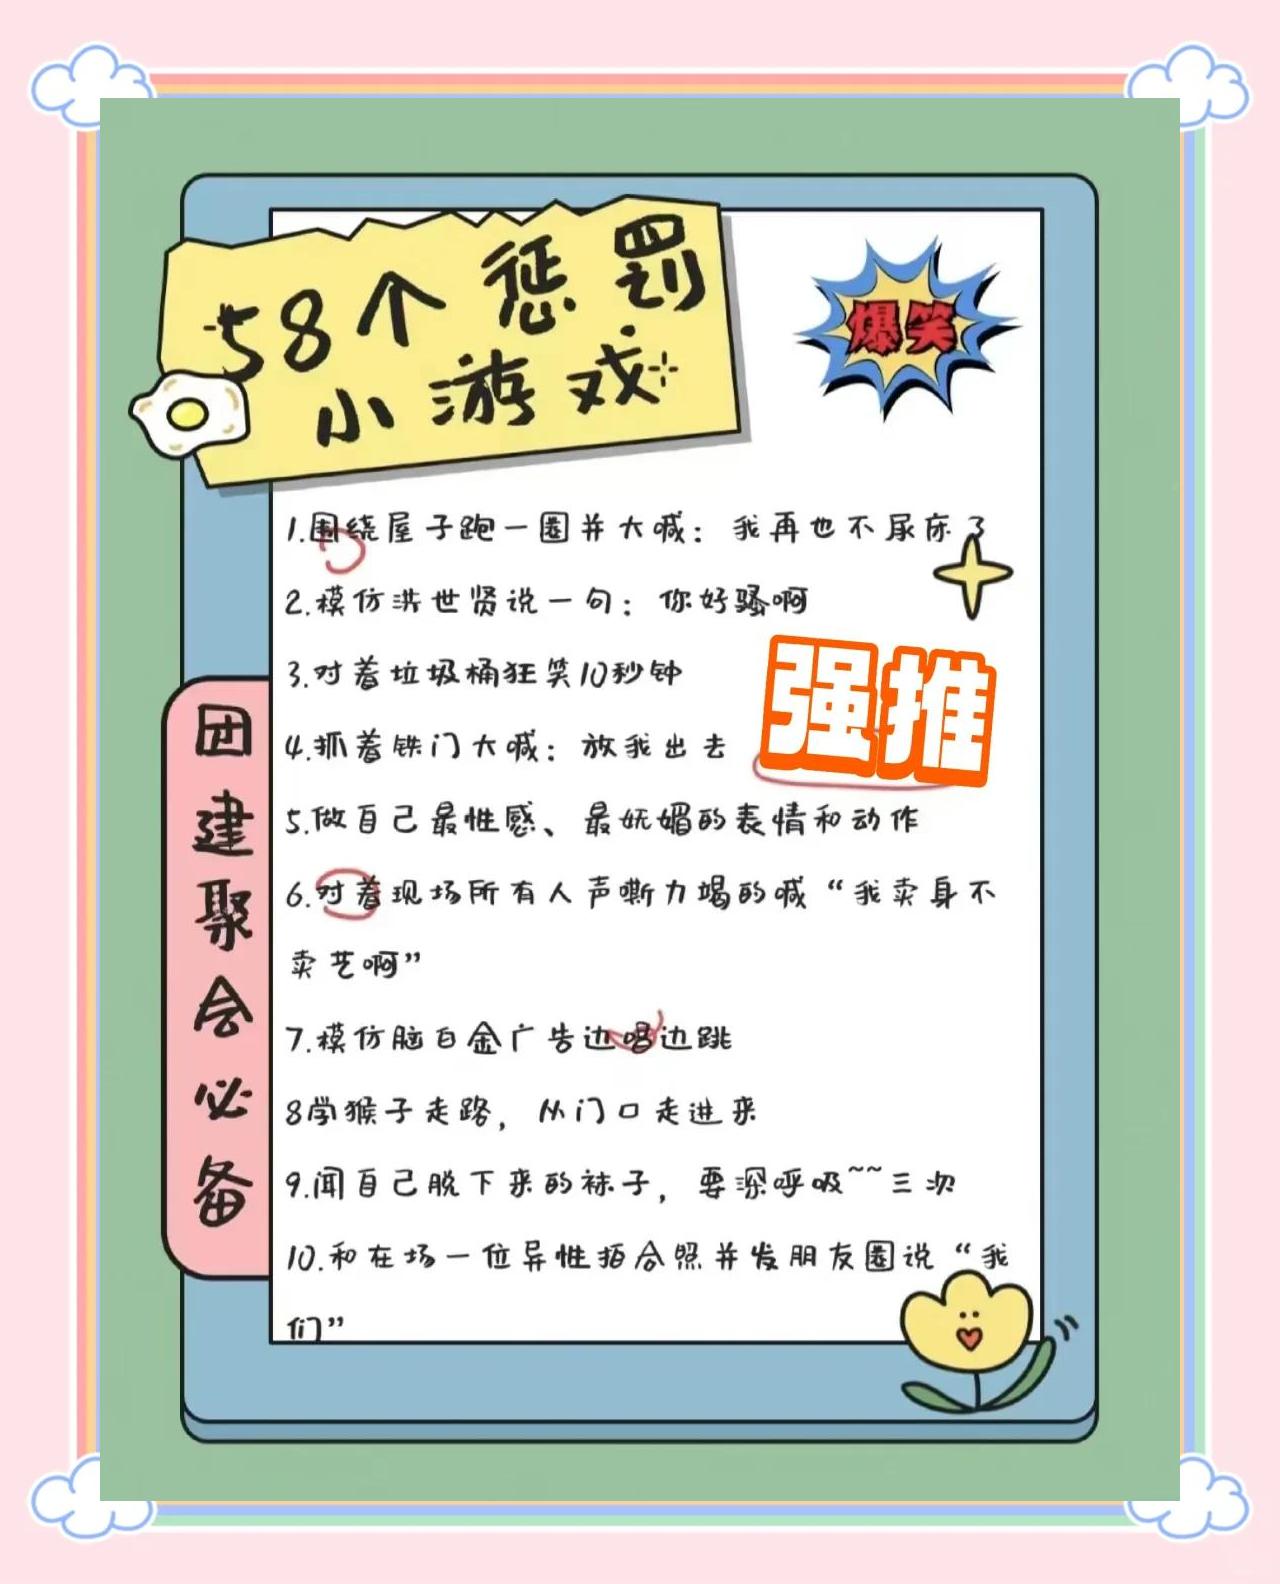 58个惩罚
小游戏
爆笑
1.围绕屋子跑一圈并大喊：我再也不尿床了
2.模仿洪世贤说一句：你好骚啊
3.对着垃圾桶狂笑10秒钟
强推
4.抓着铁门大喊：放我出去
5.做自己最性感、最妩媚的表情和动作
6.对着现场所有人声嘶力竭的喊“我卖身不
卖艺啊”
7.模仿脑白金广告边唱边跳
8学猴子走路，从门口走进来
9.闻自己脱下来的袜子，要深呼吸~~三次
10.和在场一位异性拍合照并发朋友圈说“我
们”
团建聚会必备